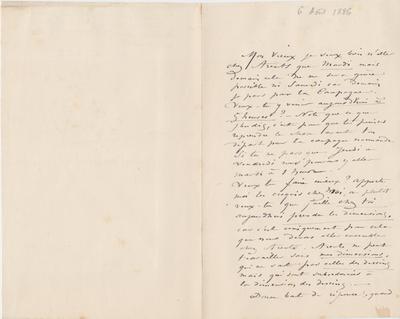 6 Août 1886
Mon vieux je veux bien n'aller
chez Arents que Mardi mais
demain cela ne me sera guère
possible ni Samedi car Demain
je pars pour la Campagne.
Veux-tu y venir aujourd'hui à
5 heures? - Note que ce que
j'en dis, c'est pour que tu puisses
reprendre la chose avant ton
départ pour ta campagne normande
Si tu ne pars que Jeudi
Vendredi nous pourrons y aller
mardi à 1 heure.
Veux tu faire mieux? apporte
moi les croquis chez moi, ou plutôt
veux-tu que j'aille chez toi
aujourd'hui prendre les dimensions,
car c'est uniquement pour cela
que nous devons aller ensemble
chez Arents. Arents ne peut
travailler sans mes dimensions,
qui ne sont pas celles des dessins
mais qui sont subordonnées à
la dimension des dessins.
Donc un mot de réponse, quand